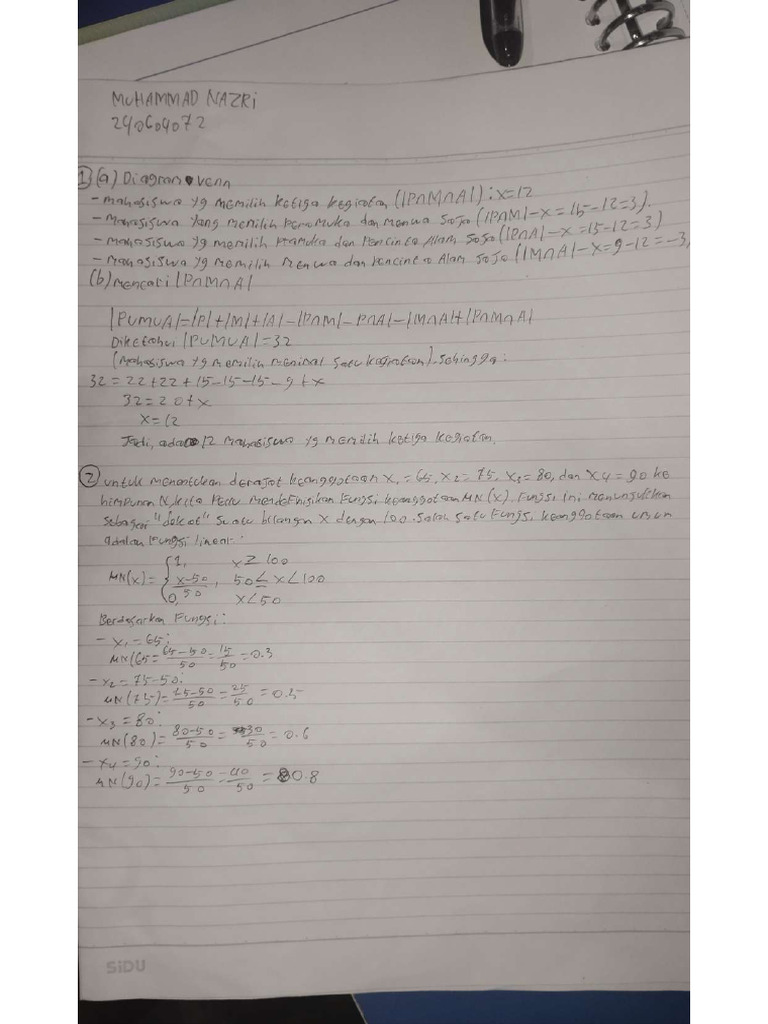 MUHAMMAD NAZRI
240604072
1) (a) Diagram venn
- mahasiswa yg memilih ketiga kegiatan (|P∩M∩A|) : x=12
- Mahasiswa yang memilih Peramuka dan menwa saja (|P∩M|-x = 15-12=3).
- Mahasiswa yg memilih Pramuka dan Pencinta Alam saja (|P∩A|-x=15-12=3)
- Mahasiswa yg memilih Menwa dan Pencinta Alam saja (|M∩A|-x=9-12=-3,
(b) mencari |P∩M∩A|
|PUMUA|=|P|+|M|+|A|-|P∩M|-P∩A|-|M∩A|+|P∩M∩A|
Diketahui |PUMUA|=32
(Mahasiswa yg memilih minimal satu kegiatan). sehingga:
32 = 22+22+15-15-15-9+x
32=20+x
x=12
Jadi, ada 12 mahasiswa yg memilih ketiga kegiatan.
2) untuk menentukan derajat keanggotaan x₁=65, x₂=75, x₃=80, dan x₄=90 ke
himpunan N, kita Perlu mendefinisikan Fungsi keanggotaan μN(x). Fungsi Ini menunjukkan
sebagai "dekat" suatu bilangan x dengan 100. Salah satu Fungsi keanggotaan umum
adalah Fungsi linear:
μN(x)= { 1, x≥100
x-50/50, 50≤x<100
0, x<50
Berdasarkan Fungsi:
- x₁=65:
μN(65=65-50/50=15/50=0.3
- x₂=75-50:
μN(75)=75-50/50=25/50=0.5
- x₃=80:
μN(80)=80-50/50=30/50=0.6
- x₄=90:
μN(90)=90-50/50=40/50=0.8
SiDU